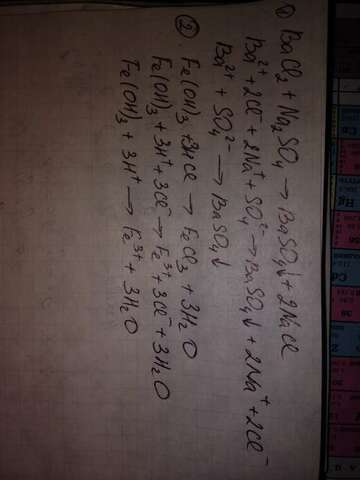 ① BaCl₂ + Na₂SO₄ → BaSO₄↓ + 2NaCl
Ba²⁺ + 2Cl⁻ + 2Na⁺ + SO₄²⁻ → BaSO₄↓ + 2Na⁺ + 2Cl⁻
Ba²⁺ + SO₄²⁻ → BaSO₄↓
②. Fe(OH)₃ + 3HCl → FeCl₃ + 3H₂O
Fe(OH)₃ + 3H⁺ + 3Cl⁻ → Fe³⁺ + 3Cl⁻ + 3H₂O
Fe(OH)₃ + 3H⁺ → Fe³⁺ + 3H₂O
Hg
Cd